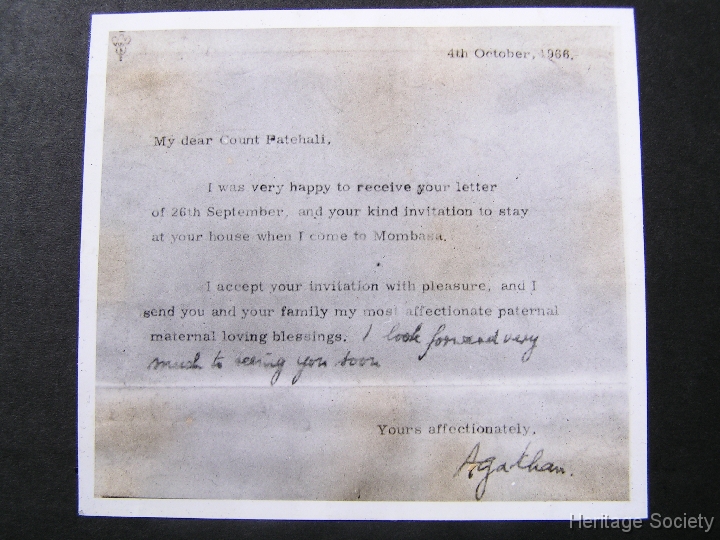 4th October, 1966.
My dear Count Fatehali,
I was very happy to receive your letter
of 26th September, and your kind invitation to stay
at your house when I come to Mombasa.
I accept your invitation with pleasure, and I
send you and your family my most affectionate paternal
maternal loving blessings. I look forward very
much to seeing you soon
Yours affectionately,
Aga Khan.
Heritage Society